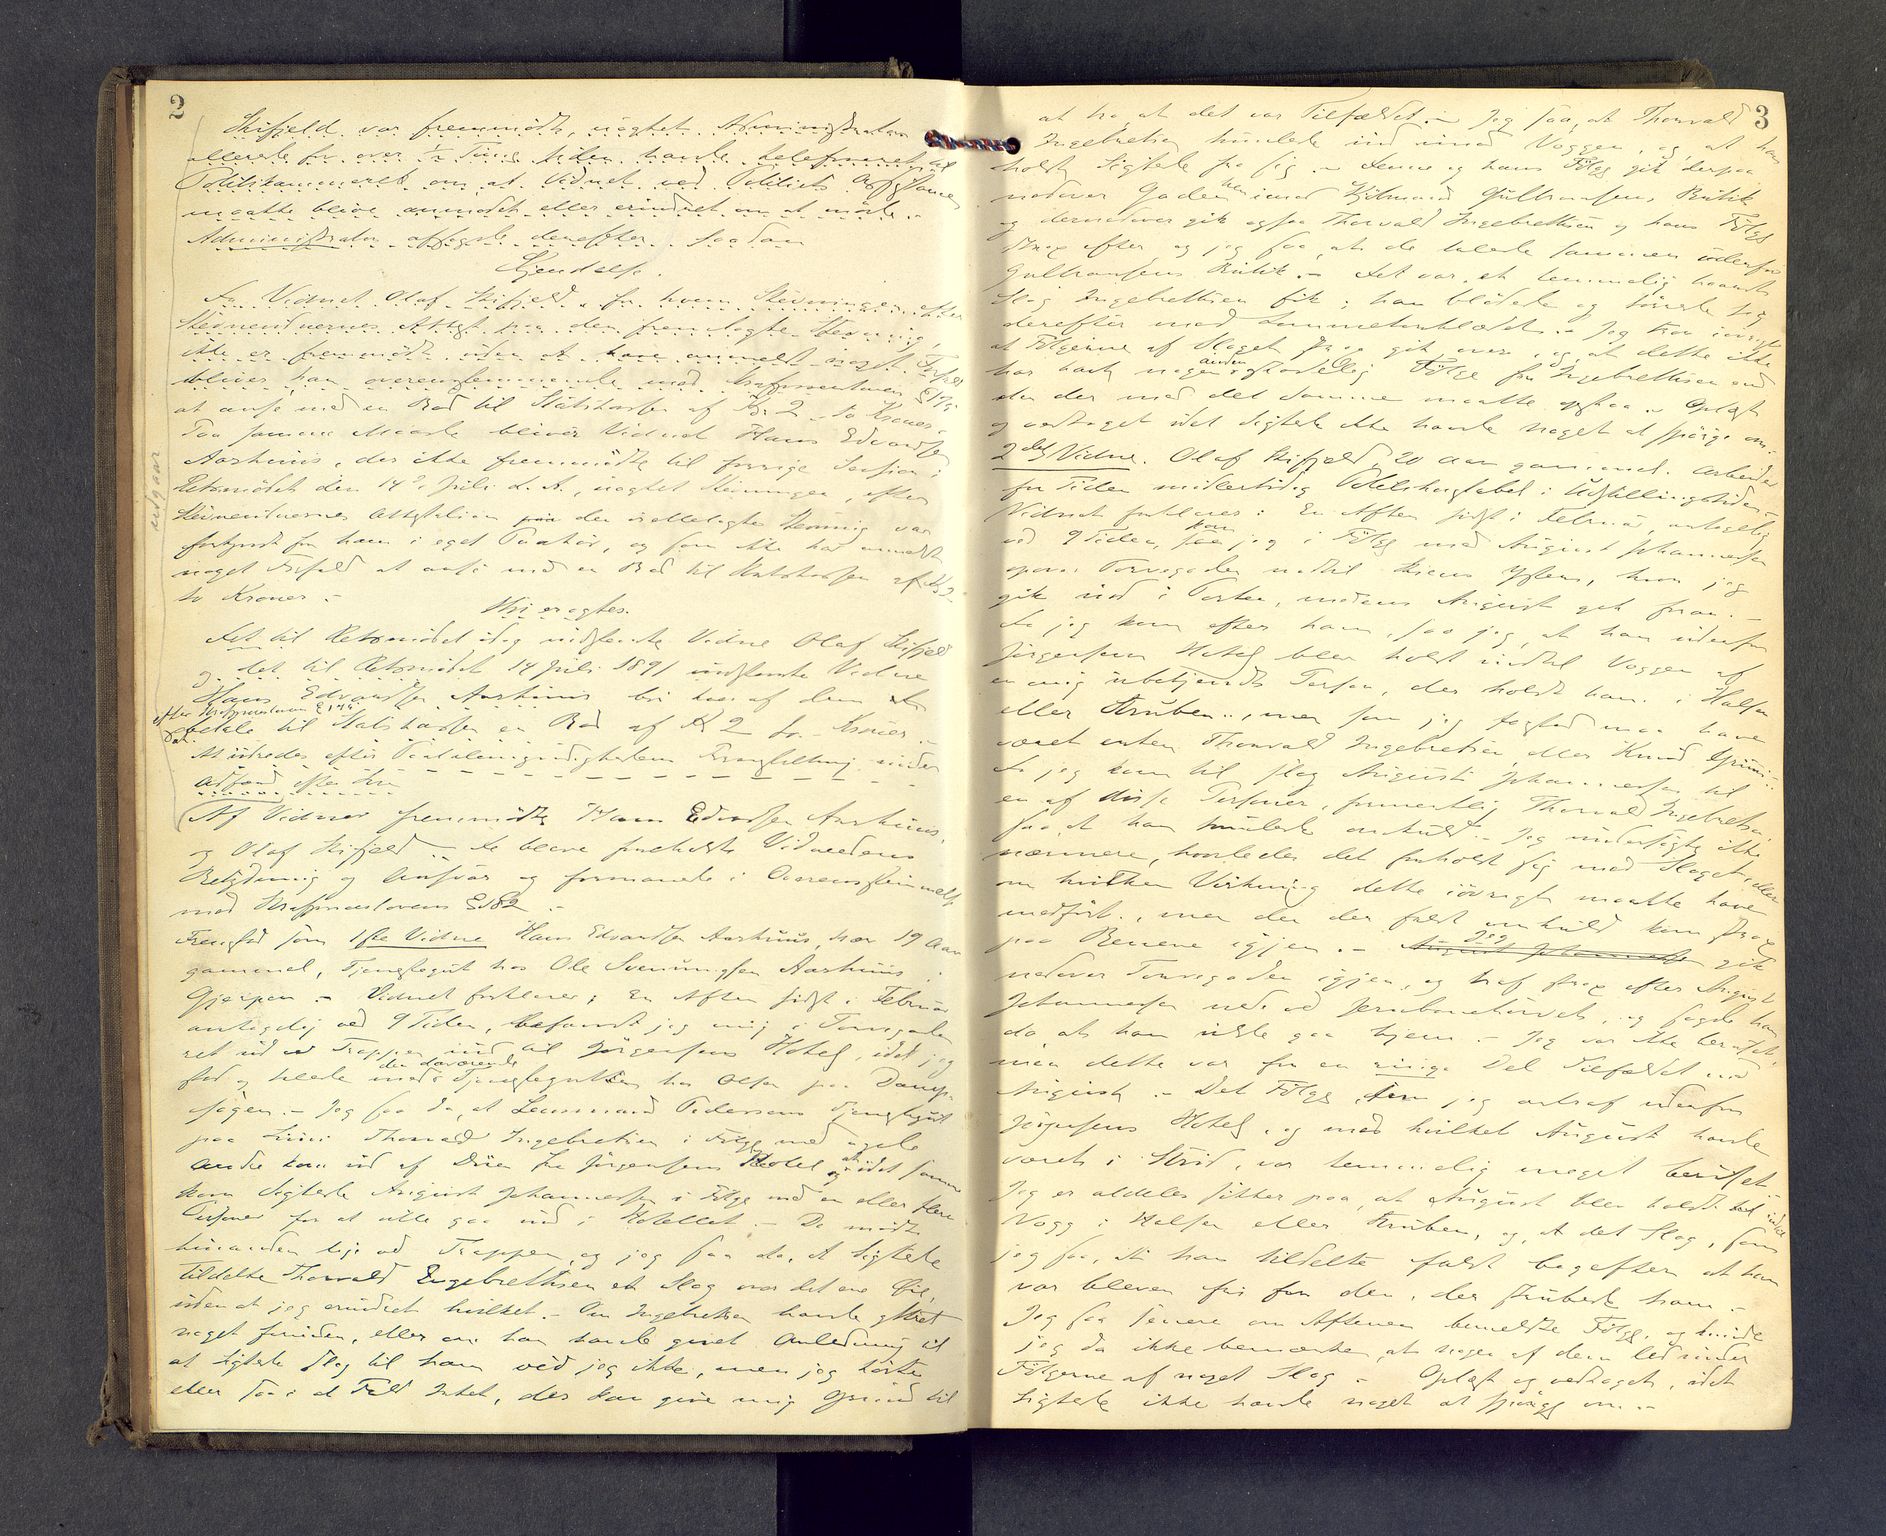 2
Skifjeld var fremmødt, uagtet Administrator
allerede for over 1/2 Time siden havde telefoneret til
Politikammeret om at Vidnet ved Politiets Assistance
maatte blive anmodet eller erindret om at møde.
Administrator afsagde derefter saadan
Kjendelse.
Da Vidnet Olaf Skifjeld, for hvem Stevningen efter
Stevnevidnernes Attest paa den fremlagte Stevning,
ikke er fremmødt uden at have anmeldt noget Forfald
bliver han overensstemmende med Strafproceslovens § 175
at anse med en Bod til Statskassen af Kr 2 - to Kroner.
Paa samme Maade bliver Vidnet Hans Edvardsen
Aarhuus, der ikke fremmødte til forrige Session i
Retsmødet den 14de Juli d. A., uagtet Stevningen, efter
Stevnevidnernes Attestation paa den vedlagte Stevning var
forkyndt for ham i eget Paahør, og som ikke har anmeldt
noget Forfald at anse med en Bod til Statskassen af Kr 2
to Kroner. -
Thi eragtes:
Det til Retsmødet idag indstevnte Vidne Olaf Skifjeld
og det til Retsmødet 14 Juli 1891 indstevnte Vidne
Hans Edvardsen Aarhuus bør hver af dem
efter Strafproceslovens § 175
betale til Statskassen en Bod af Kr 2 to - Kroner -
At udredes efter Paalæg under
Adfærd efter Lov
udgaar
Af Vidner fremmødte Hans Edvardsen Aarhuus,
og Olaf Skifjeld - De bleve foreholdte Vidneedens
Betydning og Ansvar og formanede i Overensstemmelse
med Strafproceslovens § 182 -
Fremstod som 1ste Vidne Hans Edvardsen Aarhuus, nær 19 Aar
gammel, Tjenestegut hos Ole Svenungsen Aarhuus i
Gjerpen - Vidnet forklarer: En Aften sidst i Februar
antagelig ved 9 Tiden, befandt jeg mig i Torvegaden
ret ud Trappen ind til Jørgensens Hotel, idet jeg
den daværende
stod og talede med Tjenestegutten hos Olsen paa Damp-
sagen. - Jeg saa da, at Lensmand Pedersens Tjenestegut
paa Thorvald Ingebretsen i Følge med nogle
andre kom ud af Døren fra Jørgensens Hotel og at idet samme
kom Sigtede August Johannessen i Følge med en eller flere
Personer for at ville gaa ind i Hotellet. - De mødte
hinanden lige ved Trappen, og jeg saa da, at Sigtede
tildelte Thorvald Ingebrethsen et Slag over det ene Øie,
uden at jeg erindrer hvilket. - Om Ingebretsen havde yttret
noget forinden, eller om han havde givet Anledning til
at Sigtede slog til ham ved jeg ikke, men jeg hørte
eller saa i et Fald Intet, der kan give mig Grund til
3
at tro, at det var Tilfældet. - Jeg saa, at Thorvald
Ingebretsen tumlede ind imod Væggen, og at han
holdt Sigtede fra sig. - Denne og hans Følge gik derpaa
nedover Gaden hen imod Kjøbmand Gulhausens Butik
og dernedover gik ogsaa Thorvald Ingebrethsen og hans Følge
strax efter og jeg saa, at de talede sammen udenfor
Gulhausens Butik. - Det var et temmelig haardt
Slag Ingebrethsen fik; han blødede og tørrede sig
derefter med Lommetørklædet. - Jeg tror iøvrigt
at Følgerne af Slaget strax gik over, og at dette ikke
har havt nogen anden skadelig Følge for Ingebrethsen end
den der med det samme maatte opstaa. - Oplæst
og vedtaget idet Sigtede ikke havde noget at spørge om.
2det Vidne. Olaf Skifjeld, 20 Aar gammel. Arbeider
for Tiden midlertidig Politikonstabel i Udstillingstiden. -
Vidnet forklarer: En Aften sidst i Februar, antagelig
ved 9 Tiden, kom jeg i Følge med August Johannessen
opover Torvegaden nedtil Skiens , hvor jeg
gik ind i Porten, medens August gik foran. -
Da jeg kom efter ham, saa jeg, at han udenfor
Jørgensens Hotel blev holdt indtil Væggen af
en mig ubekjendt Person, der holdt ham i Halsen
eller Struben, men som jeg maa have
været enten Thorvald Ingebretsen eller Knud
Da jeg kom til slog August Johannessen til
en af disse Personer, formentlig Thorvald Ingebretsen
saa, at han tumlede omkuld. - Jeg undersøgte ikke
nærmere, hvorledes det forholdt sig med Slaget, eller
om hvilken Virkning dette iøvrigt maatte have
medført, men den der faldt omkuld kom strax
paa Benene igjen. - August Johannessen Jeg gik
nedover Torvegaden igjen, og traf strax efter August
Johannessen nede ved Jernbanetorvet, og sagde han
da at han vilde gaa hjem. - Jeg var ikke beruset,
men dette var for en ringe Del Tilfældet med
August. - Det Følge, som jeg antraf udenfor
Jørgensens Hotel, og med hvilket August havde
været i Strid, var temmelig meget beruset
Jeg er aldeles sikker paa, at August blev holdt ind til
Væg i Halsen eller Struben, og, at det Slag, som
jeg saa, at han tildelte faldt bagefter at han
var bleven fri for den, der strubede ham. -
Jeg saa senere om Aftenen bemeldte Følge, og kunde
jeg da ikke bemærke, at nogen af dem led under
Følgerne af noget Slag. - Oplæst og vedtaget, idet
Sigtede ikke havde noget at spørge om. -